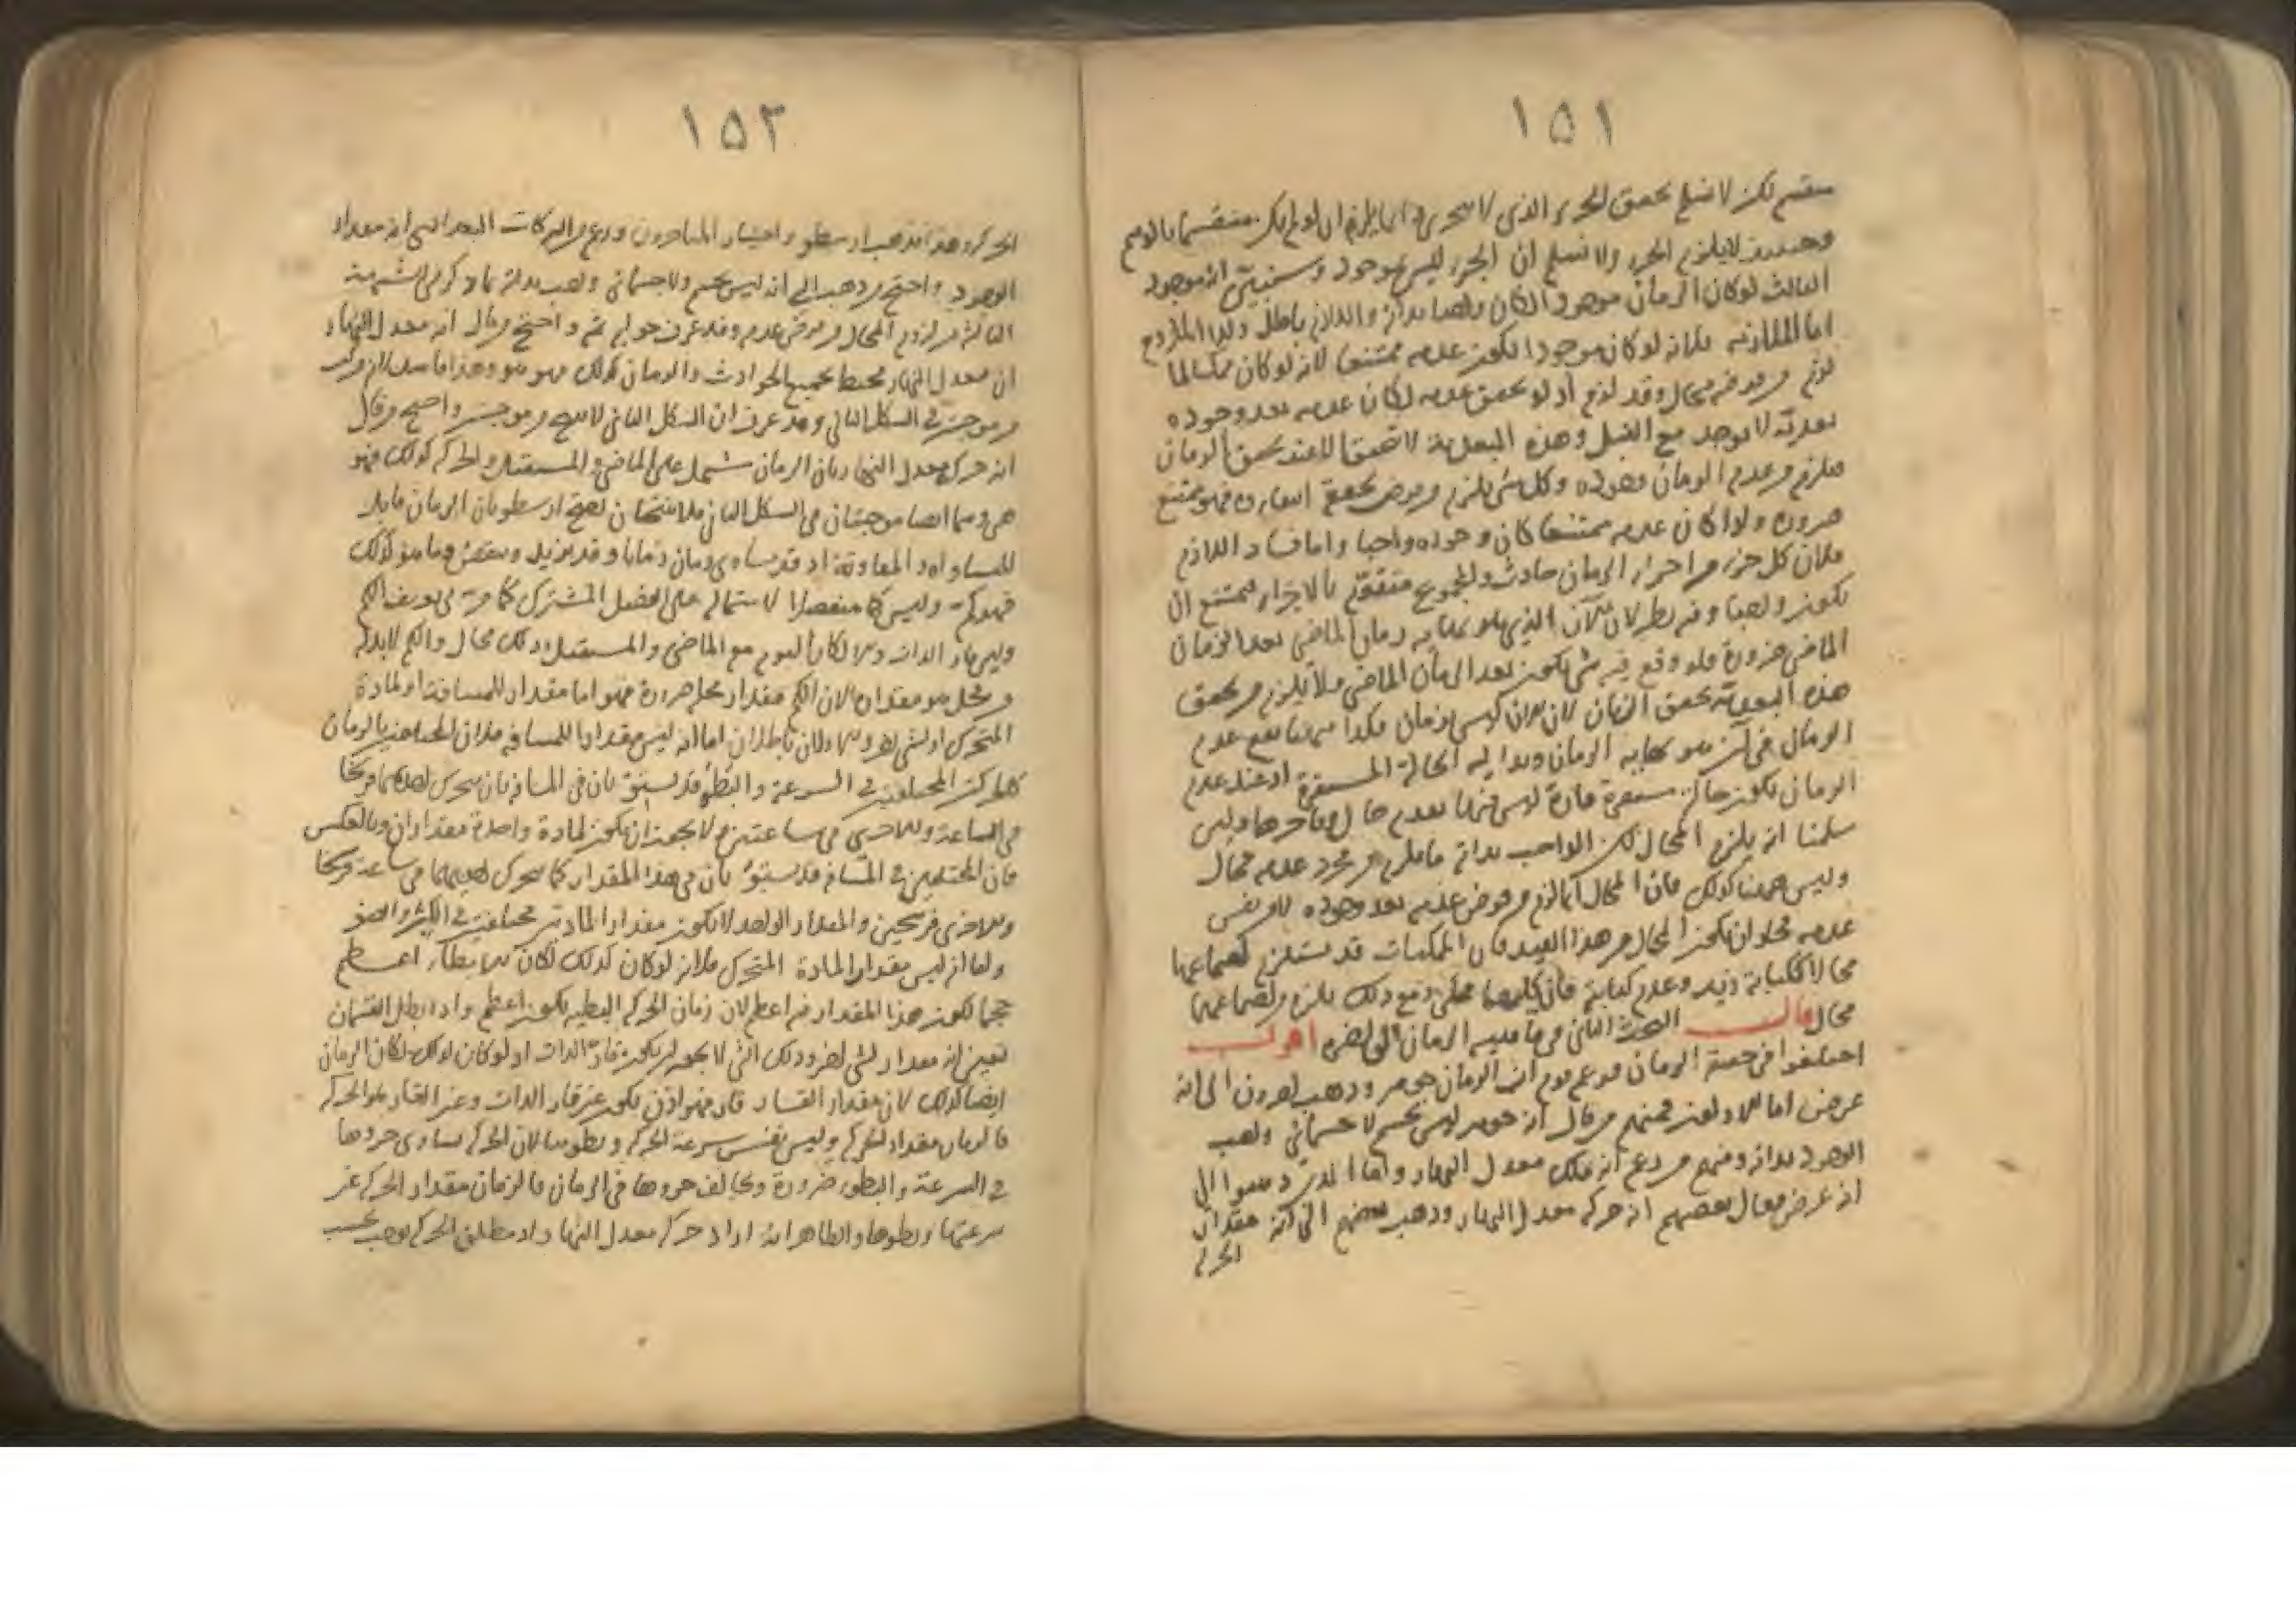 ١٥١
منقسم لكن لا نسلم تحقق الجزء الذي لا يتجزى وانما يلزم ان لو لم يكن منقسما بالوهم
وحينئذ لا يلزم الجزء ولا نسلم ان الجزء ليس بموجود وسنبين انه موجود
الثالث لو كان الزمان موجودا لكان واجبا بذاته واللازم باطل وكذا الملزوم
اما الملازمة فلانه لو كان موجودا لكون عدمه ممتنعا لانه لو كان ممكنا لما
لزم من فرضه محال وقد لزم اذ لو تحقق عدمه لكان عدمه بعد وجوده
بعدية لا يوجد مع القبل وهذه البعدية لا تتحقق الا عند تحقق الزمان
فيلزم من عدم الزمان وجوده وكل شي يلزم من فرض تحققه انتفاءه فهو ممتنع
ضرورة ولو كان عدمه ممتنعا كان وجوده واجبا واما فساد اللازم
فلان كل جزء من اجزاء الزمان حادث والمجموع متقوم بالاجزاء فيمتنع ان
يكون واجبا وفيه نظر لان الآن الذي هو نهاية زمان الماضي بعد الزمان
الماضي ضرورة فلو وقع فيه شي يكون بعد الزمان الماضي فلا يلزم من تحقق
هذه البعدية تحقق الزمان لان الآن ليس زمان فكذا
الزمان في آن هو نهاية الزمان وبداية الحالة المستمرة اذ عند عدم
الزمان يكون حالة مستمرة قارة ليس فيها تقدم حال وتاخرها وليس
سلمنا انه يلزم المحال لكن الواجب بذاته ما يلزم من مجرد عدمه محال
وليس ههنا كذلك فان المحال انما لزم من فرض عدمه بعد وجوده لا من نفس
عدمه فجاز ان يكون المحال من هذا القيد فان الممكنات قد يستلزم اجتماعها
محالا ككتابة زيد وعدم كتابته فان كليهما ممكن ومع ذلك يلزم من اجتماعهما
محال قال البحث الثاني في ماهية الزمان الى اخره اقول
اختلفوا في حقيقة الزمان فزعم قوم ان الزمان جوهر وذهب اخرون الى انه
عرض اما الاولون فمنهم من قال انه جوهر ليس بجسم ولا جسماني واجب
الوجود بذاته ومنهم من زعم انه فلك معدل النهار واما الذين ذهبوا الى
انه عرض فقال بعضهم انه حركة معدل النهار وذهب بعضهم الى انه مقدار
الحركة
١٥٢
الحركة وهذا مذهب ارسطو واختيار المتاخرون وزعم ابو البركات البغدادي انه مقدار
الوجود واحتج من ذهب الى انه ليس بجسم ولا جسماني واجب بذاته بما ذكر في الشبهة
الثالثة من لزوم المحال من فرض عدمه وقد عرف جوابه ثم واحتج من قال انه معدل النهار
ان معدل النهار محيط بجميع الحوادث والزمان كذلك فهو هو وهذا قياس
من موجبتين في الشكل الثاني وقد عرف ان الشكل الثاني لا ينتج من موجبتين واحتج من قال
انه حركة معدل النهار بان الزمان يشتمل على الماضي والمستقبل والحركة كذلك فهو
هي وهما ايضا موجبتان في الشكل الثاني فلا ينتجان احتج ارسطو بان الزمان قابل
للمساواة والمفاوتة اذ قد يساوي زمان زمانا وقد يزيد وينقص وما هو كذلك
فهو كم وليس كما منفصلا لاشتماله على الفصل المشترك كما مر في تعريف الكم
وليس قار الذات والا لكان اليوم مع الماضي والمستقبل وذلك محال والكم لا بد له
من محل هو مقداره لان الكم مقدار محل ضرورة فهو اما مقدار للمسافة او لمادة
المتحرك او لشي اخر والاولان باطلان اما انه ليس مقدارا للمسافة فلان المختلفين بالزمان
كالحركتين المختلفتين في السرعة والبطؤ قد يستويان في المسافة بان يتحرك احديهما فرسخا
في الساعة والاخرى في ساعتين ولا يجوز ان يكون لمادة واحدة مقداران وبالعكس
فان المختلفين في المسافة قد يستويان في هذا المقدار كما يتحرك احديهما في ساعة فرسخا
والاخرى فرسخين والمقدار الواحد لا يكون مقدار المادتين مختلفتين في الكبر والصغر
واما انه ليس مقدار المادة المتحرك فلانه لو كان كذلك لكان اعظم
حجما لكون هذا المقدار فيه اعظم لان زمان الحركة البطيئة يكون اعظم واذا بطل القسمان
تعين انه مقدار لشي اخر وذلك الشي لا يجوز ان يكون قار الذات اذ لو كان كذلك لكان الزمان
ايضا كذلك لان مقدار القار قار فهو اذن يكون غير قار الذات وغير القار هو الحركة
فالزمان مقدار للحركة وليس نفس سرعة الحركة وبطؤها لان الحركة يساوى جزوها
في السرعة والبطؤ ضرورة ويخالف جزوها في الزمان فالزمان مقدار الحركة غير
سرعتها وبطوها والظاهر انه اراد حركة معدل النهار اذ مطلق الحركة